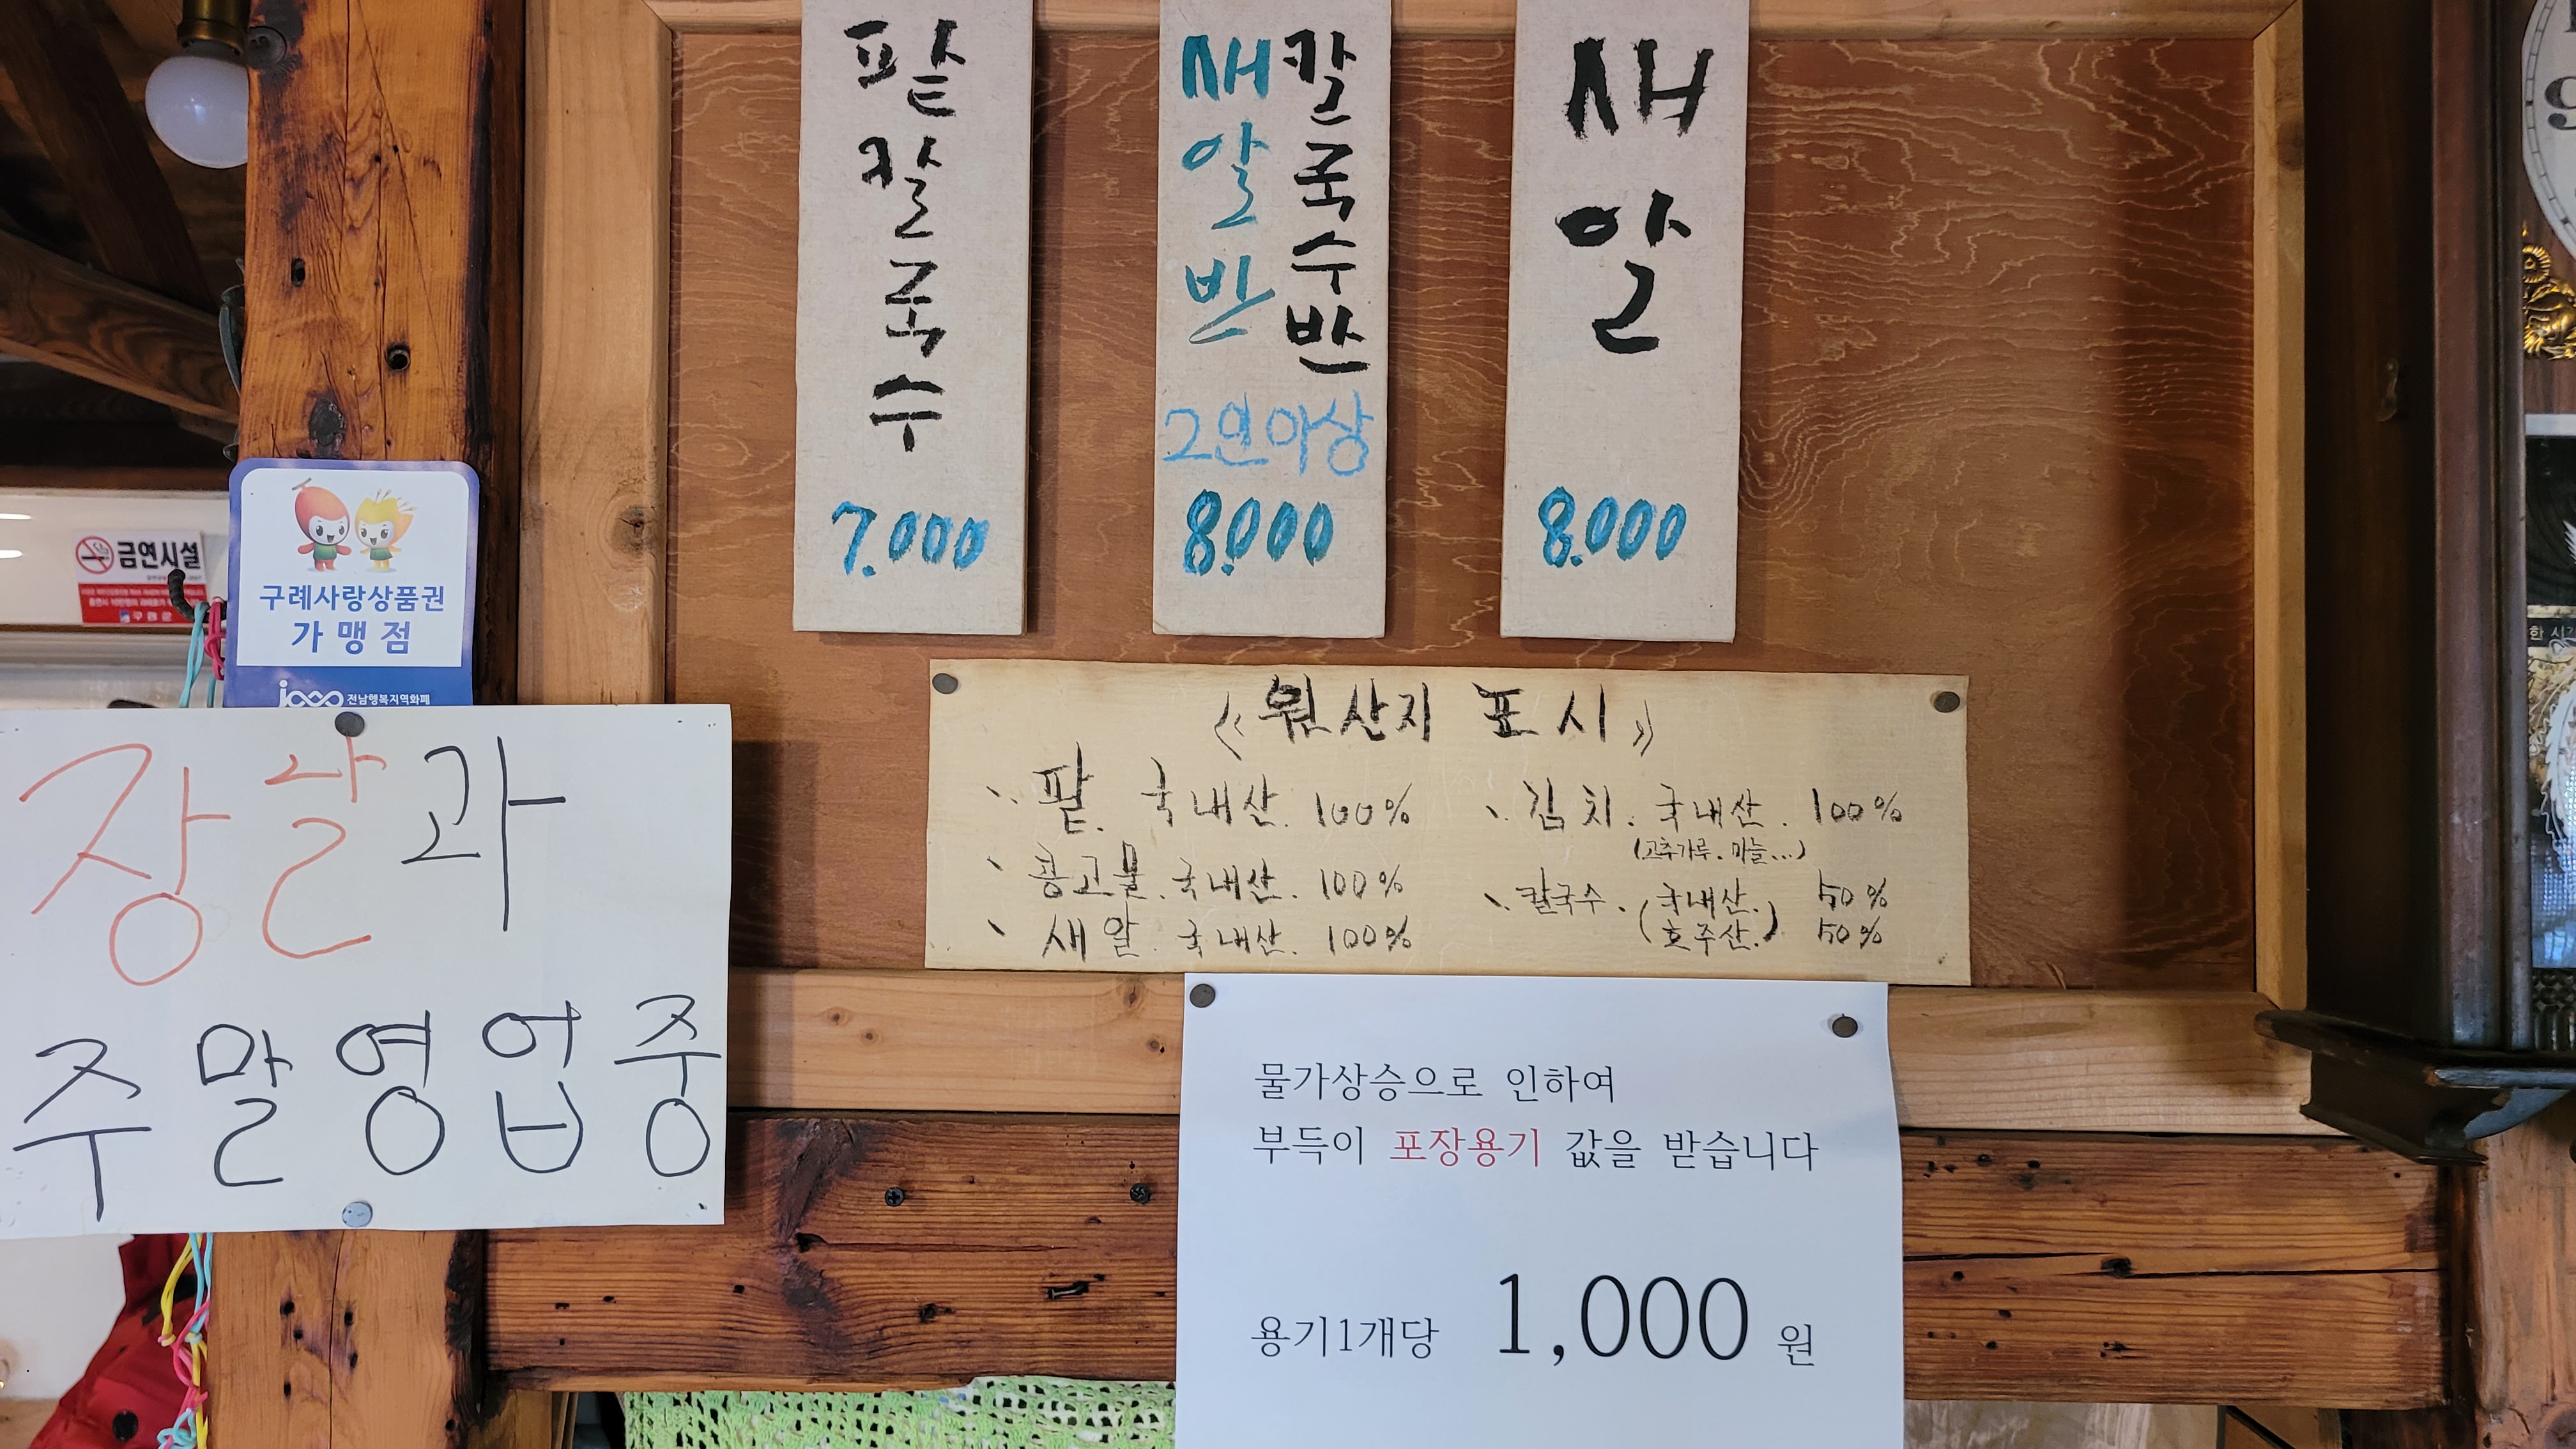 팥칼국수
7.000
칼국수반
새알반
2인이상
8.000
새알
8.000
금연시설
구례군
구례사랑상품권
가맹점
전남행복지역화폐
장날과
주말영업중
《원산지 표시》
팥. 국내산. 100%
콩고물. 국내산. 100%
새알. 국내산. 100%
김치. 국내산. 100%
(고추가루. 마늘...)
칼국수. (국내산. 50%
호주산.) 50%
물가상승으로 인하여
부득이 포장용기 값을 받습니다
용기1개당 1,000 원
9